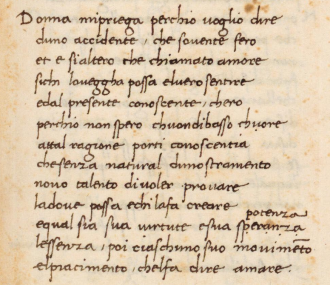 Donna mipriega perchio voglio dire
duno accidente, che sovente fero
et e sialtero che chiamato amore
sichi loveggha possa elvero sentire
edal presente conoscente, chero
perchio non spero chuondibasso chuore
attal ragione porti conoscentia
chesenza natural dimostramento
novo talento divoler provare
ladove possa echi lafa creare
potenza
equal sia sua virtute esua speranza
lessenza, poi ciaschuno suo movimento
elpiacimento, chelfa dire amare.